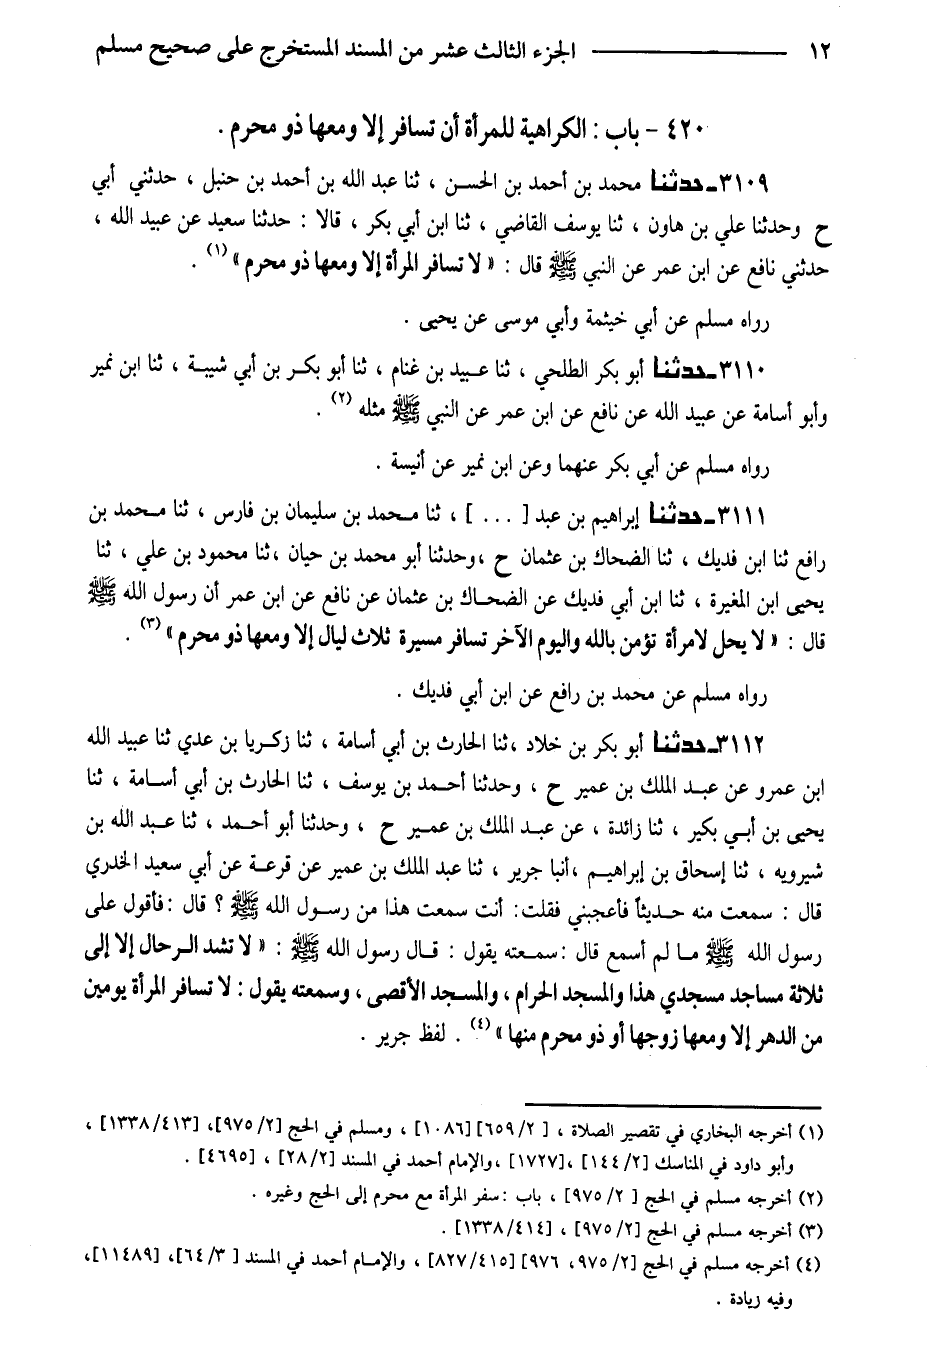 ١٢ ـــــــــــــــــ الجزء الثالث عشر من المسند المستخرج على صحيح مسلم
٤٢٠ - باب : الكراهية للمرأة أن تسافر إلا ومعها ذو محرم .
٣١٠٩ـ حدثنا محمد بن أحمد بن الحسن ، ثنا عبد الله بن أحمد بن حنبل ، حدثني أبي
ح وحدثنا علي بن هاون ، ثنا يوسف القاضي ، ثنا ابن أبي بكر ، قالا : حدثنا سعيد عن عبيد الله ،
حدثني نافع عن ابن عمر عن النبي ﷺ قال : « لا تسافر المرأة إلا ومعها ذو محرم » (١) .
رواه مسلم عن أبي خيثمة وأبي موسى عن يحيى .
٣١١٠ـ حدثنا أبو بكر الطلحي ، ثنا عبيد بن غنام ، ثنا أبو بكر بن أبي شيبة ، ثنا ابن نمير
وأبو أسامة عن عبيد الله عن نافع عن ابن عمر عن النبي ﷺ مثله (٢) .
رواه مسلم عن أبي بكر عنهما وعن ابن نمير عن أنيسة .
٣١١١ـ حدثنا إبراهيم بن عبد [ . . . ] ، ثنا محمد بن سليمان بن فارس ، ثنا محمد بن
رافع ثنا ابن فديك ، ثنا الضحاك بن عثمان ح ،وحدثنا أبو محمد بن حيان ،ثنا محمود بن علي ، ثنا
يحيى ابن المغيرة ، ثنا ابن أبي فديك عن الضحاك بن عثمان عن نافع عن ابن عمر أن رسول الله ﷺ
قال : « لا يحل لامرأة تؤمن بالله واليوم الآخر تسافر مسيرة ثلاث ليال إلا ومعها ذو محرم » (٣) .
رواه مسلم عن محمد بن رافع عن ابن أبي فديك .
٣١١٢ـ حدثنا أبو بكر بن خلاد ،ثنا الحارث بن أبي أسامة ، ثنا زكريا بن عدي ثنا عبيد الله
ابن عمرو عن عبد الملك بن عمير ح ، وحدثنا أحمد بن يوسف ، ثنا الحارث بن أبي أسامة ، ثنا
يحيى بن أبي بكير ، ثنا زائدة ، عن عبد الملك بن عمير ح ، وحدثنا أبو أحمد ، ثنا عبد الله بن
شيرويه ، ثنا إسحاق بن إبراهيم ،أنبا جرير ، ثنا عبد الملك بن عمير عن قرعة عن أبي سعيد الخدري
قال : سمعت منه حديثاً فأعجبني فقلت: أنت سمعت هذا من رسول الله ﷺ ؟ قال :فأقول على
رسول الله ﷺ ما لم أسمع قال :سمعته يقول : قال رسول الله ﷺ : « لا تشد الرحال إلا إلى
ثلاثة مساجد مسجدي هذا والمسجد الحرام ، والمسجد الأقصى ، وسمعته يقول : لا تسافر المرأة يومين
من الدهر إلا ومعها زوجها أو ذو محرم منها » (٤) . لفظ جرير .
(١) أخرجه البخاري في تقصير الصلاة ، [ ٢/ ٦٥٩] [١٠٨٦] ، ومسلم في الحج [٢/ ٩٧٥]، [١٣٣٨/٤١٣] ،
وأبو داود في المناسك [٢/ ١٤٤] ،[١٧٢٧] ،والإمام أحمد في المسند [٢٨/٢] ، [٤٦٩٥] .
(٢) أخرجه مسلم في الحج [ ٢/ ٩٧٥] ، باب :سفر المرأة مع محرم إلى الحج وغيره .
(٣) أخرجه مسلم في الحج [٢/ ٩٧٥] ، [١٣٣٨/٤١٤] .
(٤) أخرجه مسلم في الحج [٢/ ٩٧٥، ٩٧٦] [٨٢٧/٤١٥] ، والإمام أحمد في المسند [ ٣/ ٦٤]، [١١٤٨٩]،
وفيه زيادة .